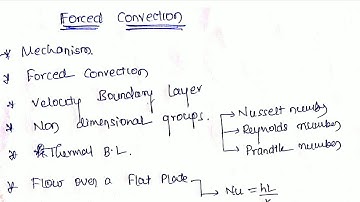 Forced Convection
* Mechanism
* Forced Convection
* Velocity Boundary Layer
* Non dimensional groups. → Nusselt number
→ Reynolds number
→ Prandtle number
* Thermal B.L.
* Flow over a Flat Plate → Nu = hL